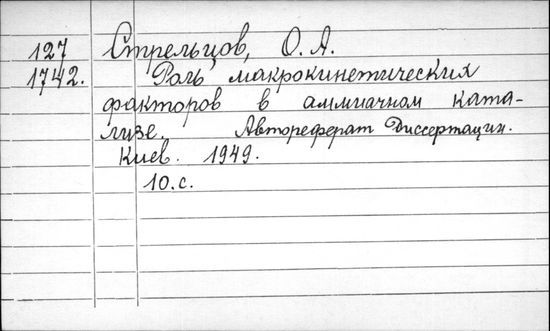 127 Стрельцов, О. А.
1742. Роль макрокинетических
факторов в аммиачном ката-
лизе. Автореферат Диссертации.
Киев. 1949.
10.с.